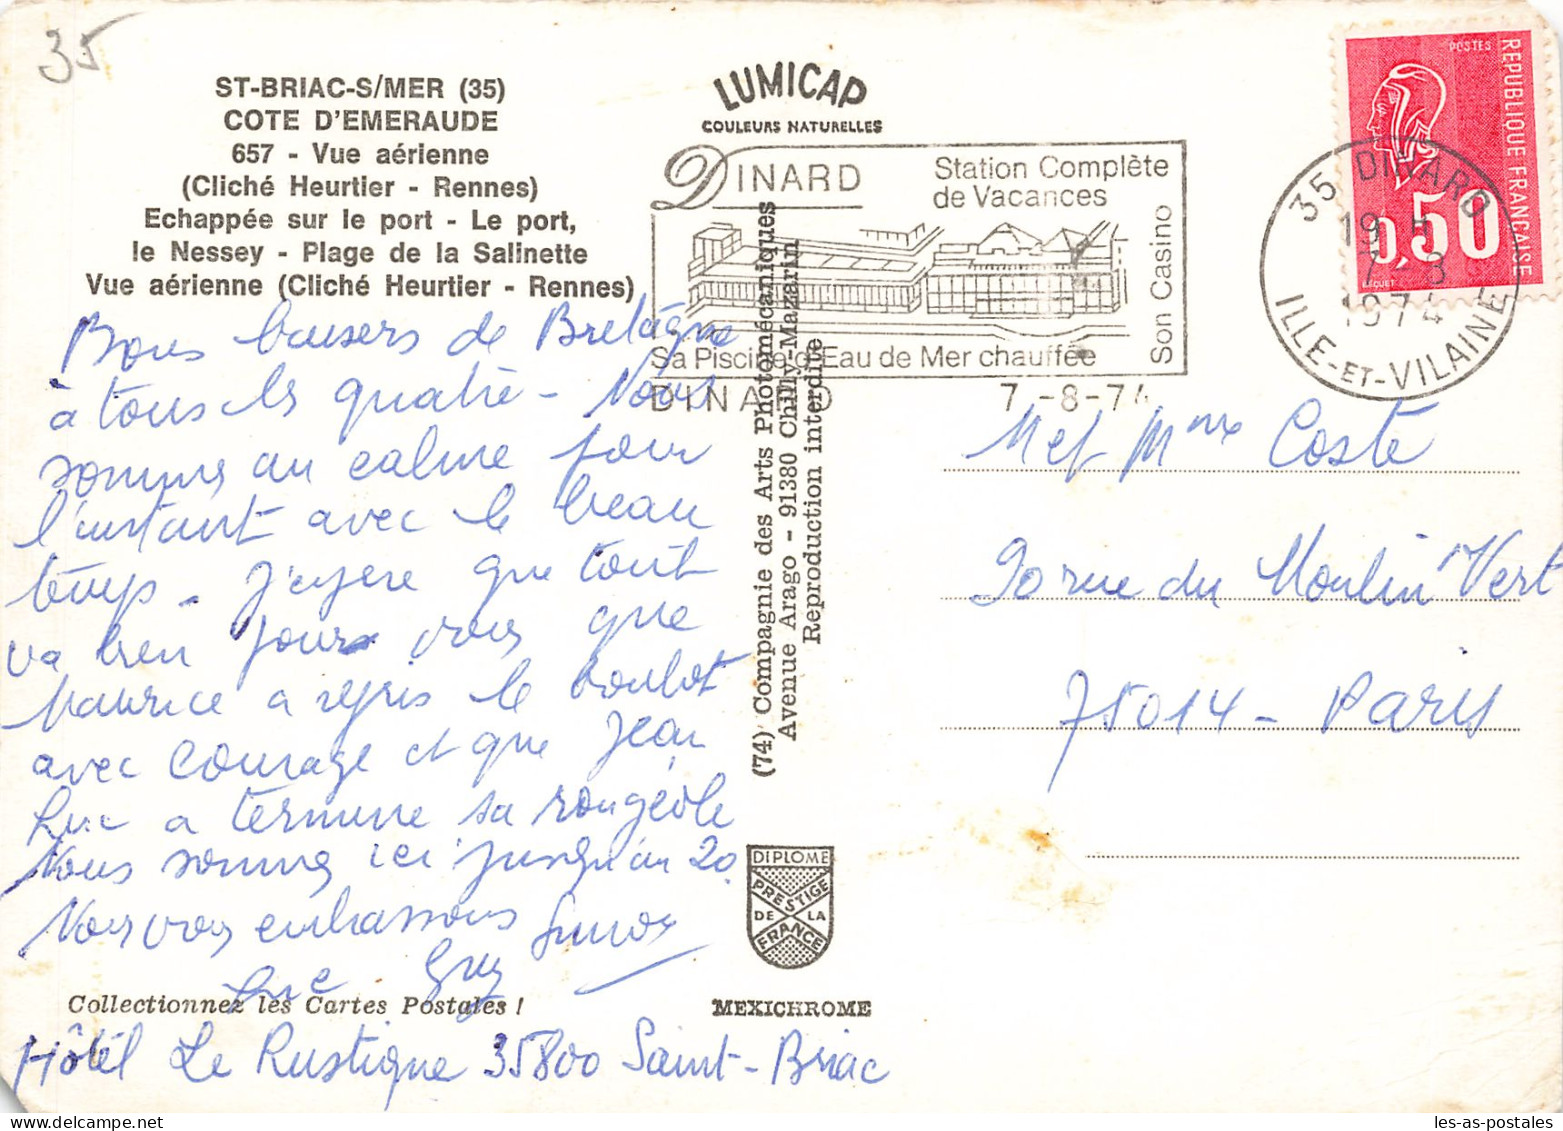 35
ST-BRIAC-S/MER (35)
COTE D'EMERAUDE
657 - Vue aérienne
(Cliché Heurtier - Rennes)
Echappée sur le port - Le port,
le Nessey - Plage de la Salinette
Vue aérienne (Cliché Heurtier - Rennes)
Bons baisers de Bretagne
à tous les quatre - Nous
sommes au calme pour
l'instant avec le beau
temps - J'espère que tout
va bien pour vous que
Maurice a repris le boulot
avec courage et que Jean
Luc a terminé sa rougeole
Nous sommes ici jusqu'au 20.
Nous vous embrassons
Simone
Luc Guy
Collectionnez les Cartes Postales !
Hôtel Le Rustique 35800 Saint-Briac
LUMICAP
COULEURS NATURELLES
DINARD
Station Complète
de Vacances
Son Casino
Sa Piscine d'Eau de Mer chauffée
DINARD 7-8-74
(74) Compagnie des Arts Photomécaniques
Avenue Arago - 91380 Chilly-Mazarin
Reproduction interdite
DIPLOME
PRESTIGE
DE LA
FRANCE
MEXICHROME
POSTES
REPUBLIQUE FRANCAISE
0,50
BEQUET
35 DINARD
19 H
7-8
1974
ILLE-ET-VILAINE
M et Mme Coste
90 rue du Moulin Vert
75014 - Paris
les-as-postales